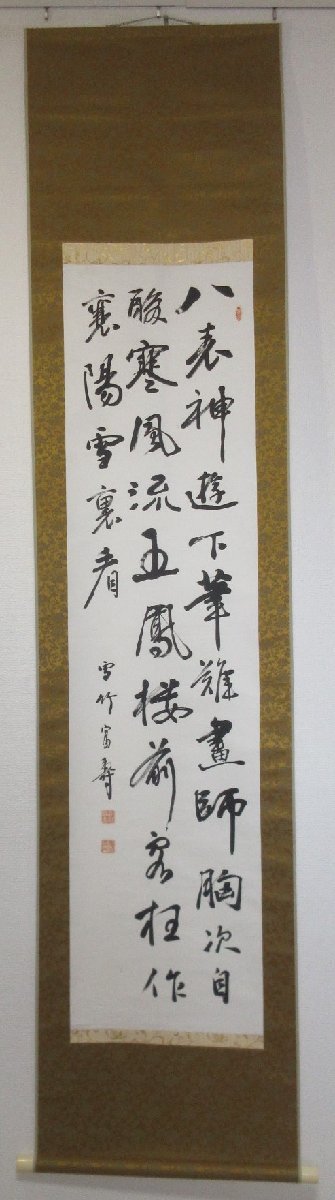 八表神遊下筆難畫師胸次自
酸寒風流五鳳樓前客枉作
襄陽雪裏看
雪竹富壽